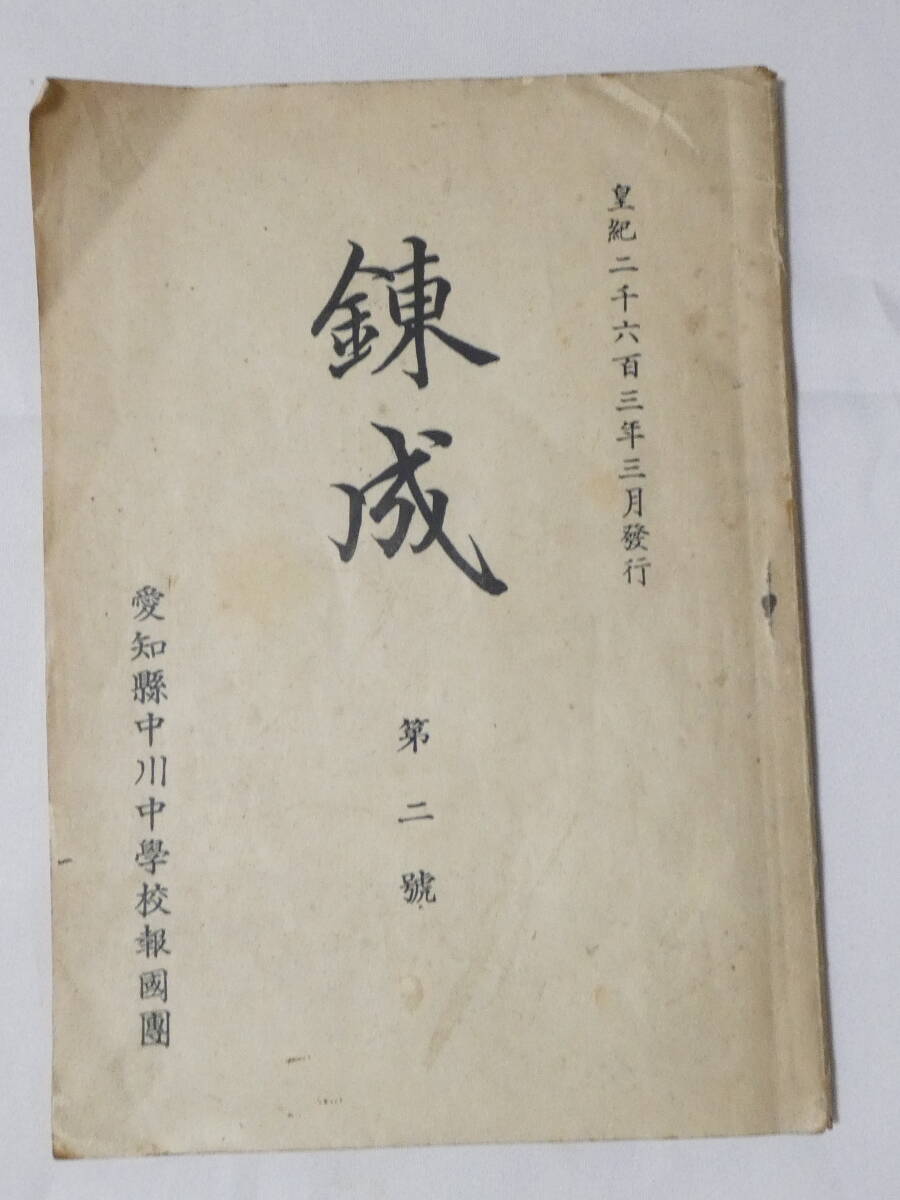 皇紀二千六百三年三月發行
錬成
第二號
愛知縣中川中學校報國團